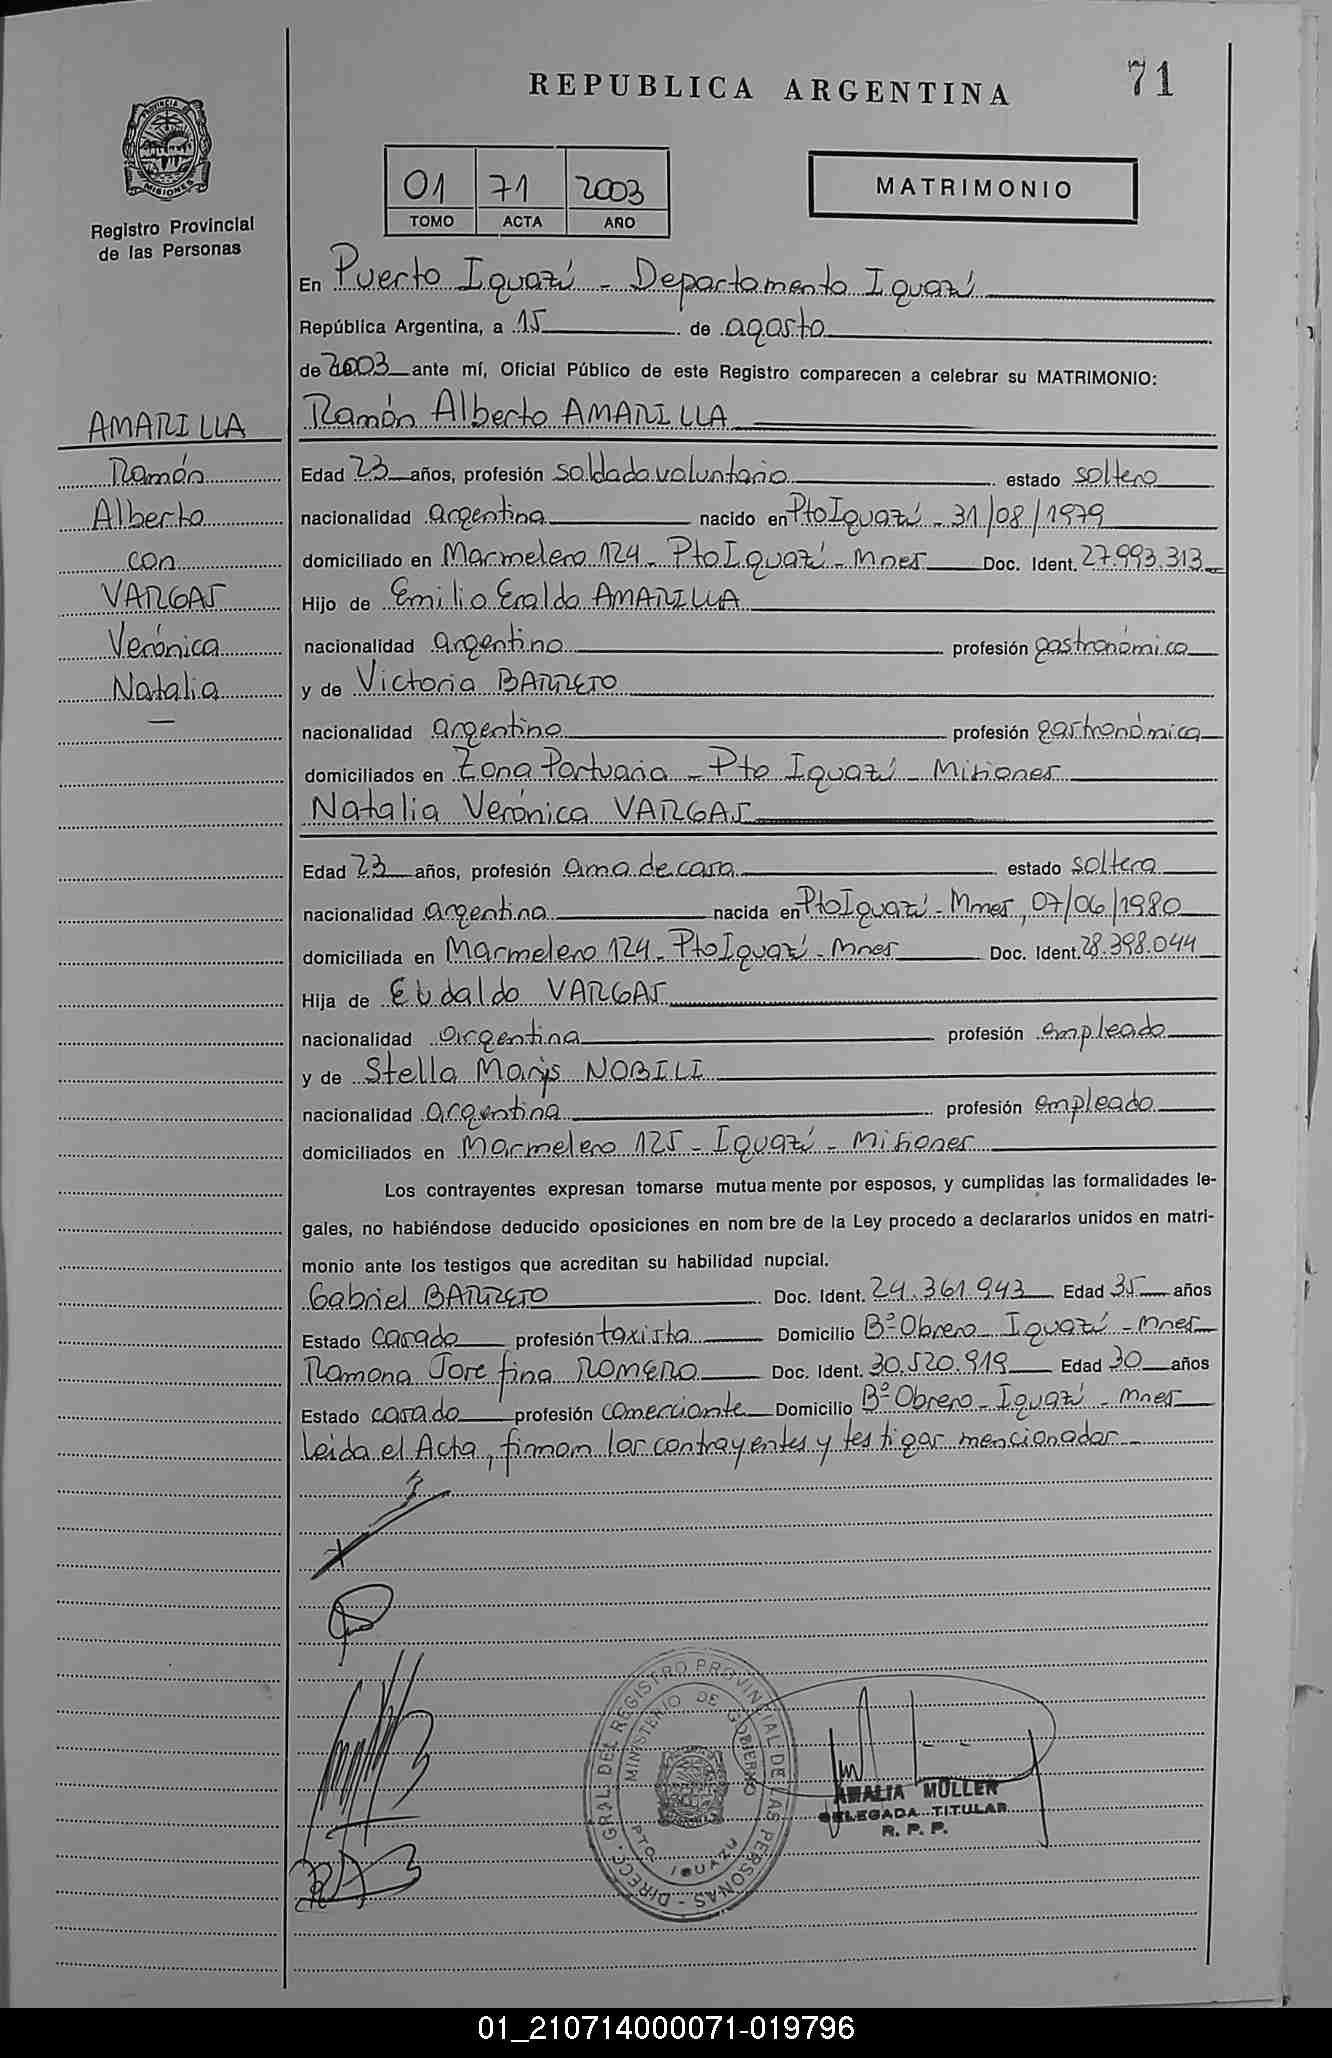 REPUBLICA ARGENTINA
71
PROVINCIA DE MISIONES
Registro Provincial
de las Personas
01 71 2003
TOMO ACTA AÑO
MATRIMONIO
En Puerto Iguazú - Departamento Iguazú
República Argentina, a 15 de agosto
de 2003 ante mí, Oficial Público de este Registro comparecen a celebrar su MATRIMONIO:
Ramón Alberto AMARILLA
AMARILLA
Ramón
Alberto
con
VARGAS
Verónica
Natalia
Edad 23 años, profesión soldado voluntario estado soltero
nacionalidad argentina nacido en Pto Iguazú - 31/08/1979
domiciliado en Marmelero 124 - Pto Iguazú - Mnes Doc. Ident. 27.993.313
Hijo de Emilio Eraldo AMARILLA
nacionalidad argentino profesión gastronómico
y de Victoria BARRETO
nacionalidad argentina profesión gastronómica
domiciliados en Zona Portuaria - Pto Iguazú - Misiones
Natalia Verónica VARGAS
Edad 23 años, profesión ama de casa estado soltera
nacionalidad argentina nacida en Pto Iguazú - Mnes, 07/06/1980
domiciliada en Marmelero 124 - Pto Iguazú - Mnes Doc. Ident. 28.398.044
Hija de Eudaldo VARGAS
nacionalidad argentina profesión empleado
y de Stella Marys NOBILI
nacionalidad argentina profesión empleado
domiciliados en Marmelero 125 - Iguazú - Misiones
Los contrayentes expresan tomarse mutua mente por esposos, y cumplidas las formalidades le-
gales, no habiéndose deducido oposiciones en nom bre de la Ley procedo a declararlos unidos en matri-
monio ante los testigos que acreditan su habilidad nupcial.
Gabriel BARRETO Doc. Ident. 24.361.943 Edad 35 años
Estado casado profesión taxista Domicilio Bº Obrero Iguazú - Mnes
Ramona Josefina ROMERO Doc. Ident. 30.520.919 Edad 30 años
Estado casado profesión comerciante Domicilio Bº Obrero - Iguazú - Mnes
Leida el Acta, firman los contrayentes y testigos mencionados
DIRECC. GRAL. DEL REGISTRO PROVINCIAL DE LAS PERSONAS -
MINISTERIO DE GOBIERNO
PTO. IGUAZU
AMALIA MULLER
DELEGADA TITULAR
R. P. P.
01_210714000071-019796